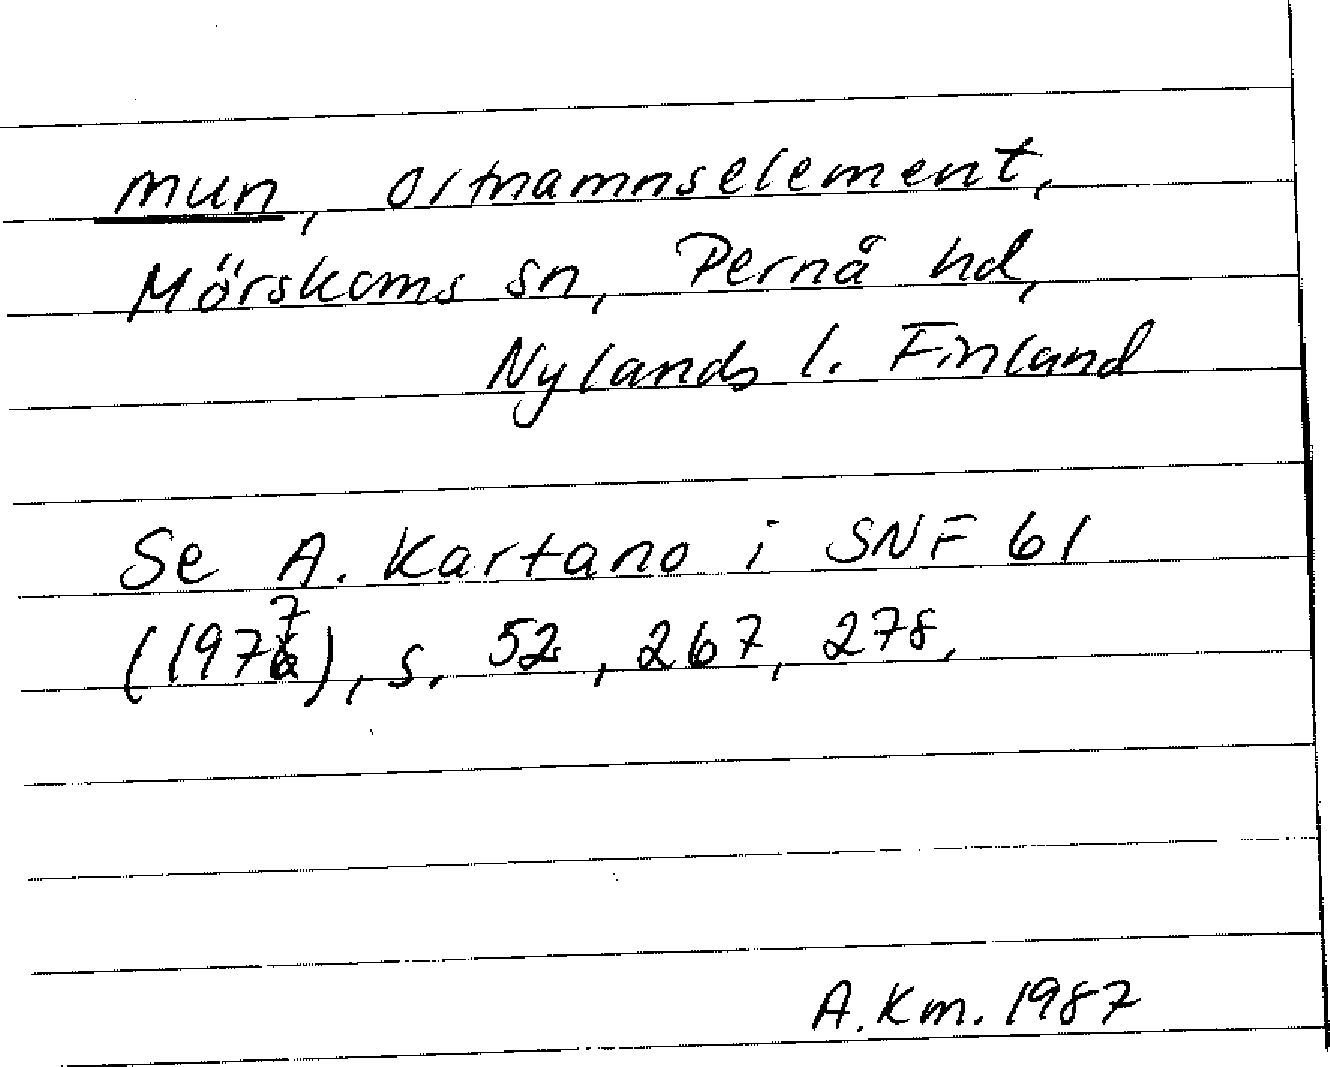 mun, ortnamnselement,
Mörskoms sn, Pernå hd,
Nylands l. Finland
Se A. Kartano i SNF 61
(1977), s. 52, 267, 278.
A. Km. 1987